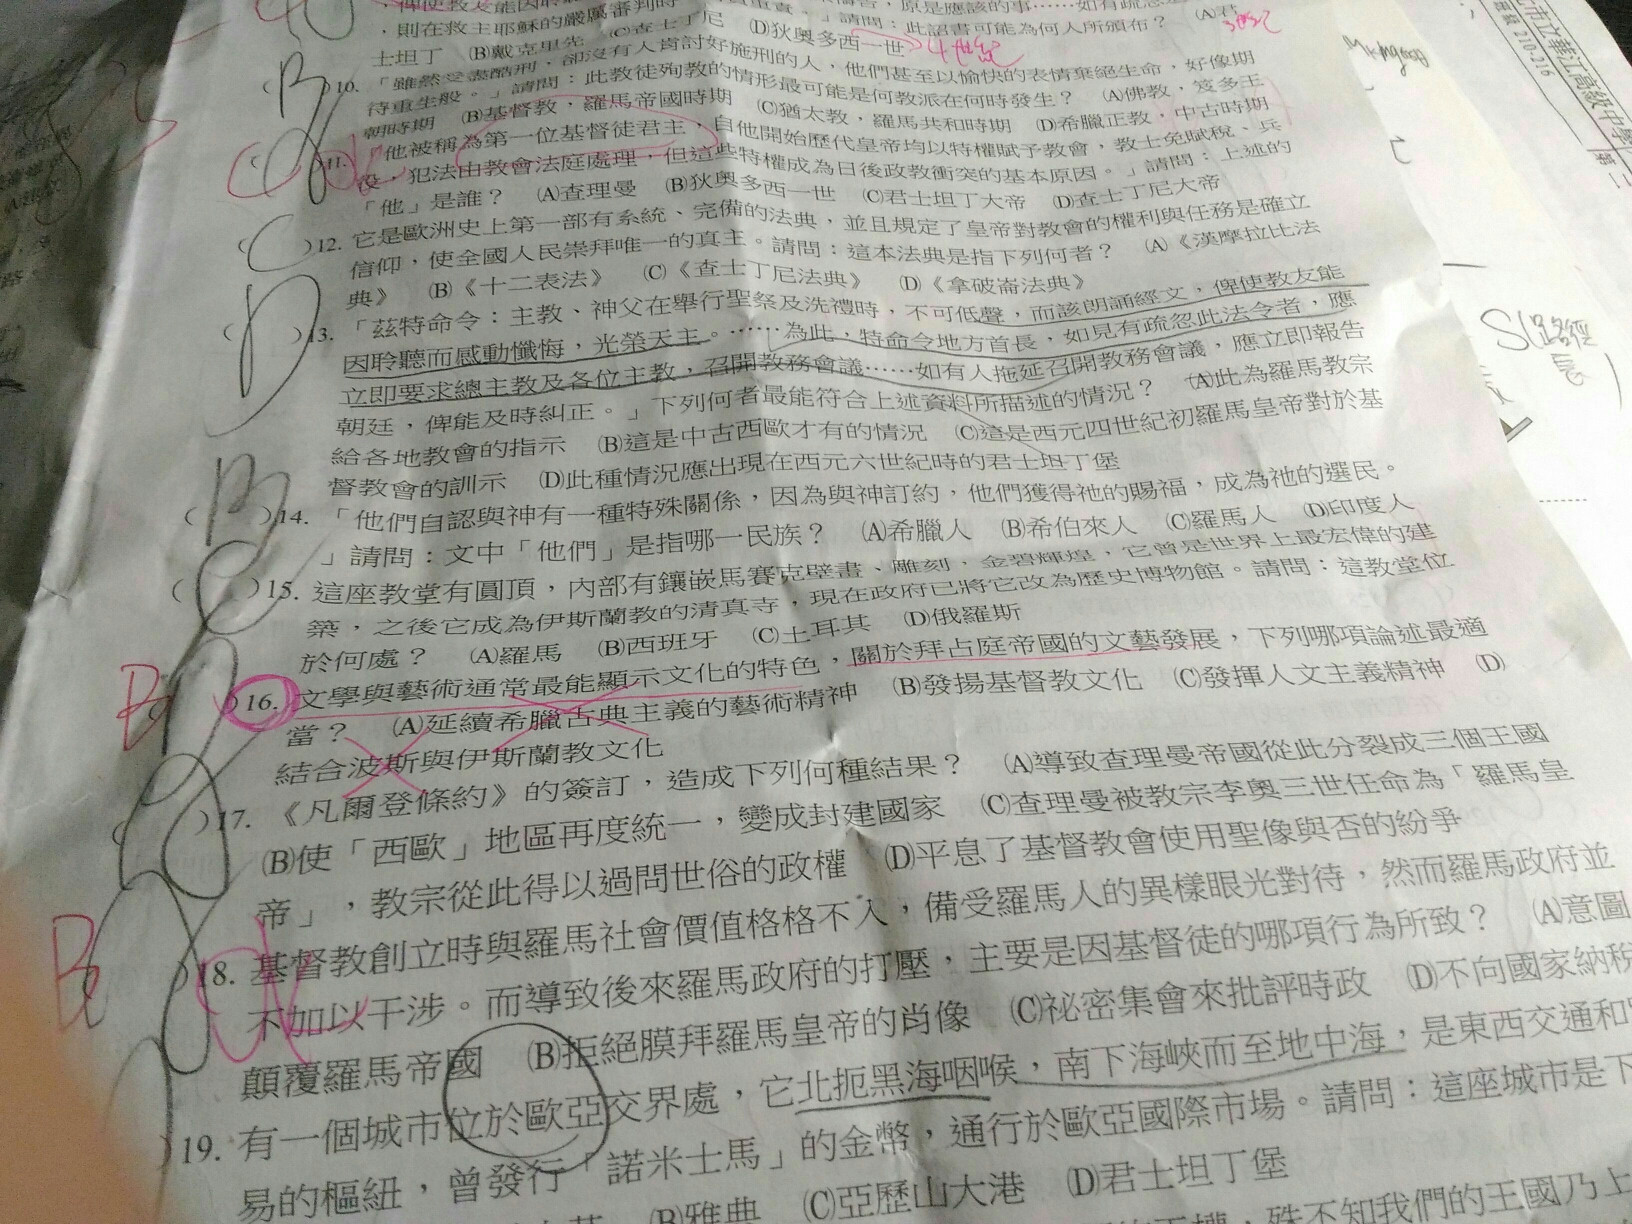 則在救主耶穌的嚴厲審判時
請問：此詔書可能為何人所頒布？ (A)君
士坦丁 (B)戴克里先 (C)查士丁尼 (D)狄奧多西一世 4世紀
10. 「雖然受盡酷刑，卻沒有人肯討好施刑的人，他們甚至以愉快的表情棄絕生命，好像期
待重生般。」請問：此教徒殉教的情形最可能是何教派在何時發生？ (A)佛教，笈多王
朝時期 (B)基督教，羅馬帝國時期 (C)猶太教，羅馬共和時期 (D)希臘正教，中古時期
11. 「他被稱為第一位基督徒君主，自他開始歷代皇帝均以特權賦予教會，教士免賦稅、兵
役，犯法由教會法庭處理，但這些特權成為日後政教衝突的基本原因。」請問：上述的
「他」是誰？ (A)查理曼 (B)狄奧多西一世 (C)君士坦丁大帝 (D)查士丁尼大帝
( C )12. 它是歐洲史上第一部有系統、完備的法典，並且規定了皇帝對教會的權利與任務是確立
信仰，使全國人民崇拜唯一的真主。請問：這本法典是指下列何者？ (A)《漢摩拉比法
典》 (B)《十二表法》 (C)《查士丁尼法典》 (D)《拿破崙法典》
( D )13. 「茲特命令：主教、神父在舉行聖祭及洗禮時，不可低聲，而該朗誦經文，俾使教友能
因聆聽而感動懺悔，光榮天主。……為此，特命令地方首長，如見有疏忽此法令者，應
立即要求總主教及各位主教，召開教務會議……如有人拖延召開教務會議，應立即報告
朝廷，俾能及時糾正。」下列何者最能符合上述資料所描述的情況？ (A)此為羅馬教宗
給各地教會的指示 (B)這是中古西歐才有的情況 (C)這是西元四世紀初羅馬皇帝對於基
督教會的訓示 (D)此種情況應出現在西元六世紀時的君士坦丁堡
( B )14. 「他們自認與神有一種特殊關係，因為與神訂約，他們獲得祂的賜福，成為祂的選民。
」請問：文中「他們」是指哪一民族？ (A)希臘人 (B)希伯來人 (C)羅馬人 (D)印度人
( C )15. 這座教堂有圓頂，內部有鑲嵌馬賽克壁畫、雕刻，金碧輝煌，它曾是世界上最宏偉的建
築，之後它成為伊斯蘭教的清真寺，現在政府已將它改為歷史博物館。請問：這教堂位
於何處？ (A)羅馬 (B)西班牙 (C)土耳其 (D)俄羅斯
B )16. 文學與藝術通常最能顯示文化的特色，關於拜占庭帝國的文藝發展，下列哪項論述最適
當？ (A)延續希臘古典主義的藝術精神 (B)發揚基督教文化 (C)發揮人文主義精神 (D)
結合波斯與伊斯蘭教文化
)17. 《凡爾登條約》的簽訂，造成下列何種結果？ (A)導致查理曼帝國從此分裂成三個王國
(B)使「西歐」地區再度統一，變成封建國家 (C)查理曼被教宗李奧三世任命為「羅馬皇
帝」，教宗從此得以過問世俗的政權 (D)平息了基督教會使用聖像與否的紛爭
B )18. 基督教創立時與羅馬社會價值格格不入，備受羅馬人的異樣眼光對待，然而羅馬政府並
不加以干涉。而導致後來羅馬政府的打壓，主要是因基督徒的哪項行為所致？ (A)意圖
顛覆羅馬帝國 (B)拒絕膜拜羅馬皇帝的肖像 (C)祕密集會來批評時政 (D)不向國家納稅
)19. 有一個城市位於歐亞交界處，它北扼黑海咽喉，南下海峽而至地中海，是東西交通和
易的樞紐，曾發行「諾米士馬」的金幣，通行於歐亞國際市場。請問：這座城市是下
(B)雅典 (C)亞歷山大港 (D)君士坦丁堡
殊不知我們的王國乃上
市立華江高級中學
210-216